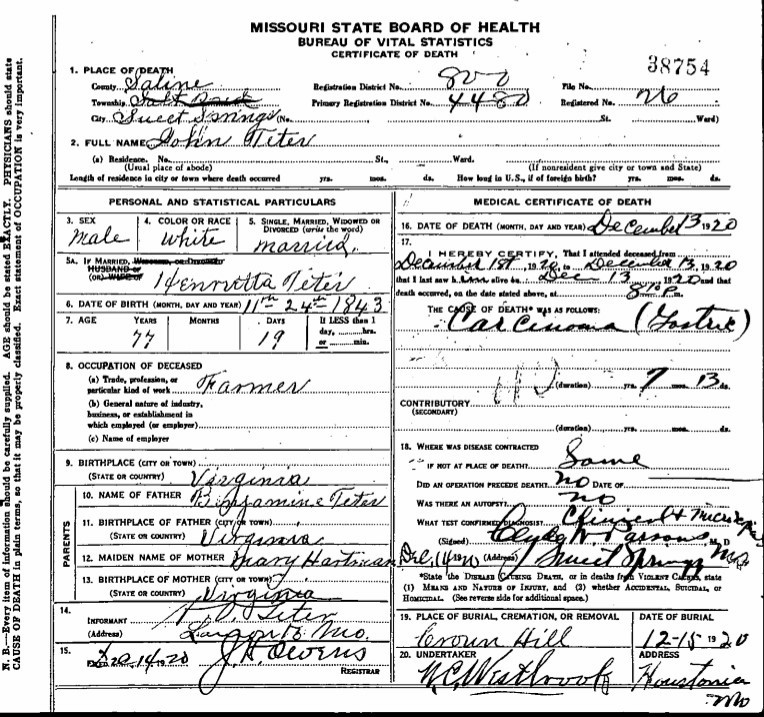 MISSOURI STATE BOARD OF HEALTH
BUREAU OF VITAL STATISTICS
CERTIFICATE OF DEATH
38754
1. PLACE OF DEATH
County Saline Registration District No. 800 File No.
Township Salt Primary Registration District No. 4480 Registered No.
City Sweet Springs (No. St. Ward)
2. FULL NAME John Teter
(a) Residence. No. St., Ward.
(Usual place of abode) (If nonresident give city or town and State)
Length of residence in city or town where death occurred yrs. mos. ds. How long in U.S., if of foreign birth? yrs. mos. ds.
PERSONAL AND STATISTICAL PARTICULARS
3. SEX male
4. COLOR OR RACE white
5. SINGLE, MARRIED, WIDOWED OR DIVORCED (write the word) married.
5A. IF MARRIED, WIDOWED, OR DIVORCED
HUSBAND OF
(OR) WIFE OF Henrietta Teter
6. DATE OF BIRTH (MONTH, DAY AND YEAR) 11th 24th 1843
7. AGE YEARS 77 MONTHS DAYS 19 If LESS than 1 day, ....hrs. or ....min.
8. OCCUPATION OF DECEASED
(a) Trade, profession, or
particular kind of work Farmer
(b) General nature of industry,
business, or establishment in
which employed (or employer)
(c) Name of employer
9. BIRTHPLACE (CITY OR TOWN)
(STATE OR COUNTRY) Virginia
PARENTS
10. NAME OF FATHER Binjamine Teter
11. BIRTHPLACE OF FATHER (CITY OR TOWN)
(STATE OR COUNTRY) Virginia
12. MAIDEN NAME OF MOTHER Mary Hartman
13. BIRTHPLACE OF MOTHER (CITY OR TOWN)
(STATE OR COUNTRY) Virginia
14.
INFORMANT Teter
(Address) Mo.
15.
FILED 14, 1920 J. H. Owens
REGISTRAR
MEDICAL CERTIFICATE OF DEATH
16. DATE OF DEATH (MONTH, DAY AND YEAR) December 13 1920
17.
I HEREBY CERTIFY, That I attended deceased from
December 1st, 1920, to December 13, 1920
that I last saw h alive on Dec 13 1920 and that
death occurred, on the date stated above, at 8 P.m.
THE CAUSE OF DEATH* WAS AS FOLLOWS:
Carcinoma (Gastric)
(duration) yrs. 7 mos. 13 ds.
CONTRIBUTORY
(SECONDARY)
(duration) yrs. mos. ds.
18. WHERE WAS DISEASE CONTRACTED
IF NOT AT PLACE OF DEATH? Same
DID AN OPERATION PRECEDE DEATH? no DATE OF
WAS THERE AN AUTOPSY? no
WHAT TEST CONFIRMED DIAGNOSIS?
(Signed) Clyde W Parsons M. D
Dec, 14 1920 (Address) Sweet Springs Mo
*State the DISEASE CAUSING DEATH, or in deaths from VIOLENT CAUSES, state
(1) MEANS AND NATURE OF INJURY, and (2) whether ACCIDENTAL, SUICIDAL, or
HOMICIDAL. (See reverse side for additional space.)
19. PLACE OF BURIAL, CREMATION, OR REMOVAL DATE OF BURIAL
Crown Hill 12-15 1920
20. UNDERTAKER ADDRESS
W.C. Westbrook Houstonia
Mo
N. B.—Every item of information should be carefully supplied. AGE should be stated EXACTLY. PHYSICIANS should state
CAUSE OF DEATH in plain terms, so that it may be properly classified. Exact statement of OCCUPATION is very important.